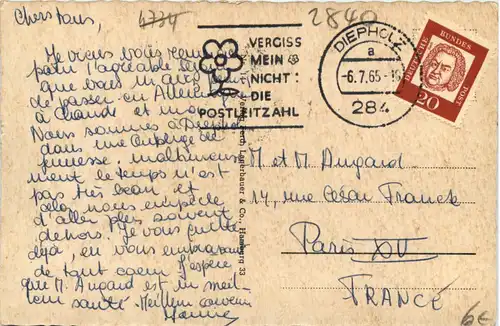 Chers tous,
Je viens vous
l'agréable
que vous m'avez
de passer en Allemagne
à Claude et moi.
Nous sommes à Diepholz
dans une auberge de
jeunesse. malheureuse
ment le temps n'est
pas très beau et
cela nous empêche
d'aller plus souvent
dehors. Je vous quitte
déjà, en vous embrassant
de tout coeur J'espère
que M. Angard est en meil
leur santé. Meilleur souvenir
4734
2840
VERGISS
MEIN
NICHT:
DIE
POSTLEITZAHL
DIEPHOLZ
a
-6.7.65-
284
DEUTSCHE BUNDESPOST
20
& Co., Hamburg 33
M et M Angard
14, rue César Franck
Paris XV
FRANCE
6€